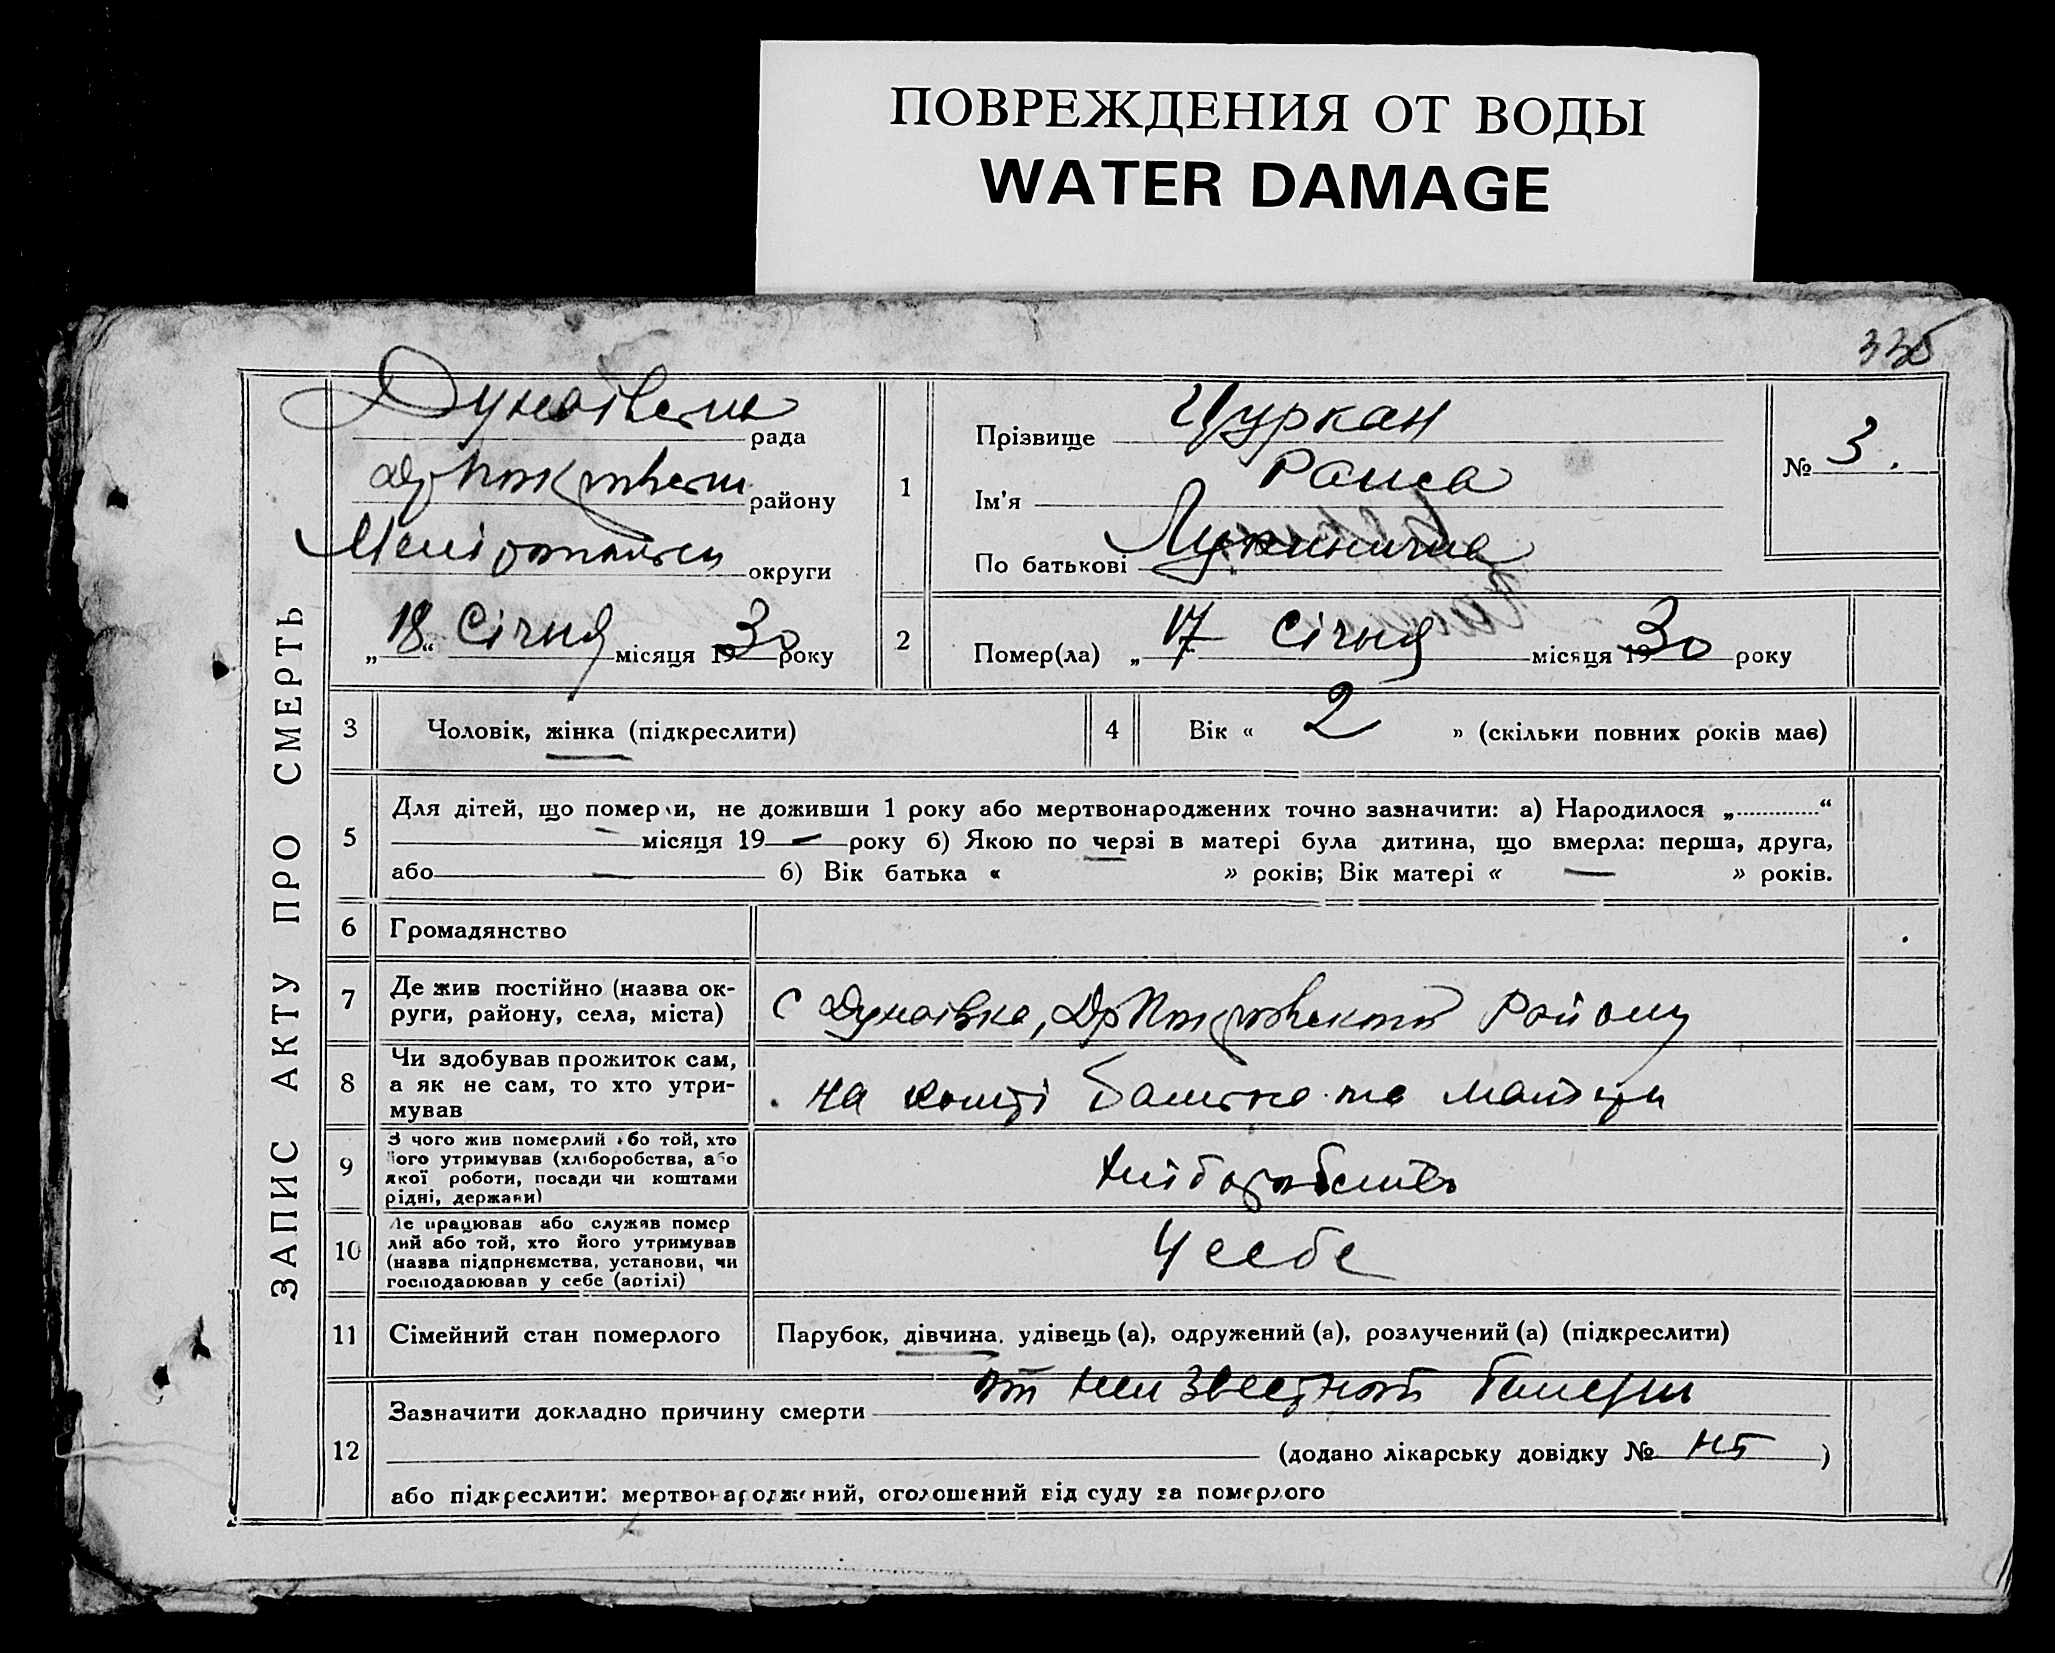 ПОВРЕЖДЕНИЯ ОТ ВОДЫ
WATER DAMAGE
ЗАПИС АКТУ ПРО СМЕРТЬ
рада
району
округи
„18“ Січня місяця 1930 року
1
Прізвище Цуркан
Ім'я Раиса
По батькові
№ 3.
2
Помер(ла) „17 Січня місяця 1930 року
3 Чоловік, жінка (підкреслити)
4 Вік « 2 » (скільки повних років має)
5 Для дітей, що померли, не доживши 1 року або мертвонароджених точно зазначити: а) Народилося „ “
— місяця 19 — року б) Якою по черзі в матері була дитина, що вмерла: перша, друга,
або — б) Вік батька « » років; Вік матері « — » років.
6 Громадянство
7 Де жив постійно (назва ок-
руги, району, села, міста)
с Дунаївка, ДрПокровского Району
8 Чи здобував прожиток сам,
а як не сам, то хто утри-
мував
на кошті батька та матери
9 З чого жив померлий або той, хто
його утримував (хліборобства, або
якої роботи, посади чи коштами
рідні, держави)
хліборобство
10 Де працював або служив помер
лий або той, хто його утримував
(назва підприємства, установи, чи
господарював у себе (артілі)
У себе
11 Сімейний стан померлого
Парубок, дівчина, удівець (а), одружений (а), розлучений (а) (підкреслити)
12 Зазначити докладно причину смерти
(додано лікарську довідку № )
або підкреслити: мертвонароджений, оголошений від суду за померлого